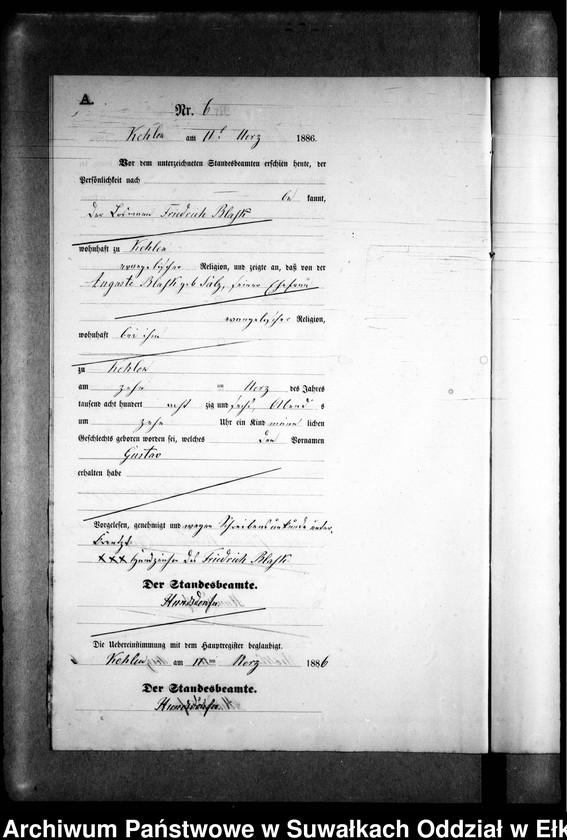 A.
Nr. 6
Kehlen am 11t Merz 1886.
Vor dem unterzeichneten Standesbeamten erschien heute, der
Persönlichkeit nach
be kannt,
der Friedrich Blask
wohnhaft zu Kehlen
evangelischer Religion, und zeigte an, daß von der
Auguste Blask geb. seiner Ehefrau
evangelischer Religion,
wohnhaft bei ihm
zu Kehlen
am zehn ten Merz des Jahres
tausend acht hundert acht zig und sechs, Abend s
um zehn Uhr ein Kind männ lichen
Geschlechts geboren worden sei, welches den Vornamen
Gustav
erhalten habe
Vorgelesen, genehmigt und wegen Schreibensunkunde unter-
kreuzt
XXX Handzeichen des Friedrich Blask
Der Standesbeamte.
Die Uebereinstimmung mit dem Hauptregister beglaubigt.
Kehlen am 11ten Merz 1886
Der Standesbeamte.
Archiwum Państwowe w Suwałkach Oddział w Ełk